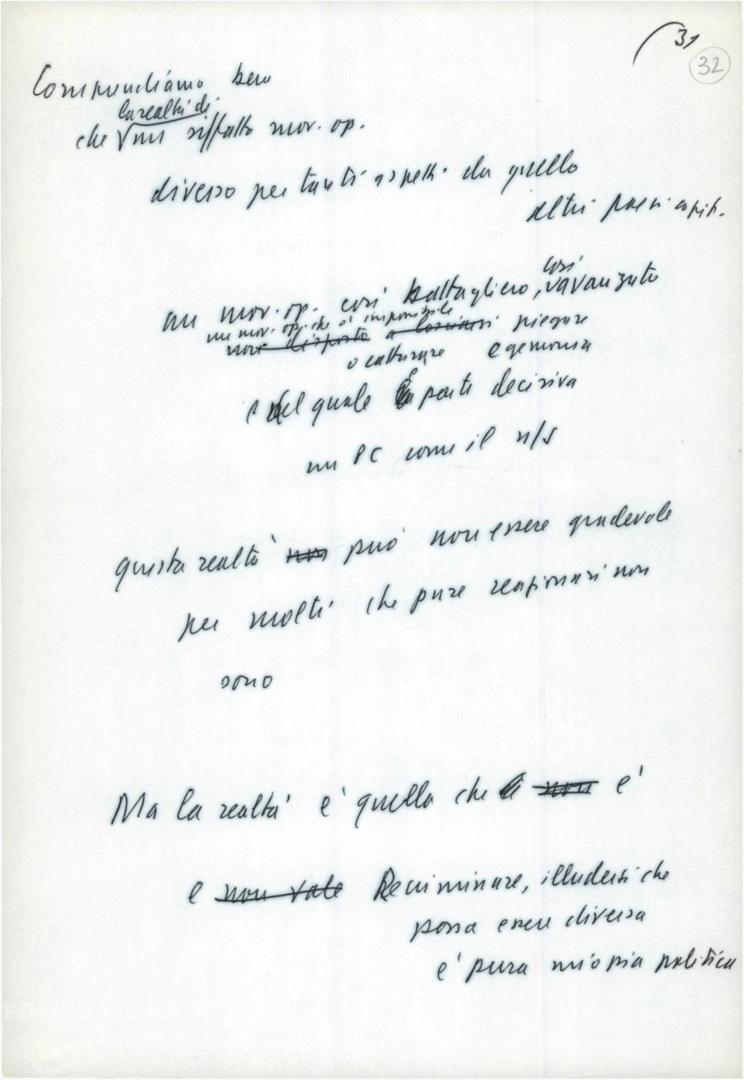 31
32
Comprendiamo bene
la realtà di
che un siffatto mov. op.
diverso per tanti aspetti da quello
altri paesi capit.
così
un mov. op. così battagliero, avanzato
un mov. op. che è impossibile
non disposto a lasciarsi piegare
o catturare egemonia
e nel quale è parte decisiva
un PC come il n/s
questa realtà non può non essere gradevole
per molti che pure reazionari non
sono
Ma la realtà è quella che non è
e non vale Recriminare, illudersi che
possa essere diversa
è pura miopia politica